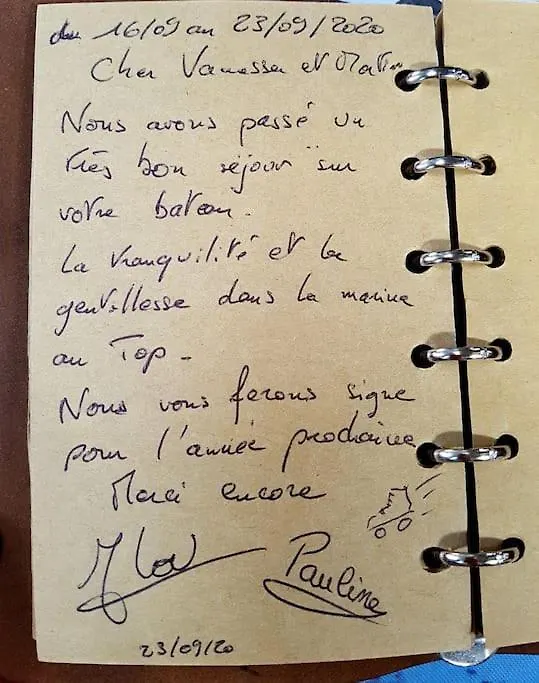 du 16/09 au 23/09/2020
Cher Vanessa et
Nous avons passé un
très bon séjour sur
votre bateau.
La tranquilité et la
gentillesse dans la marina
au Top -
Nous vous ferons signe
pour l'année prochaine
Merci encore
Pauline
23/09/20